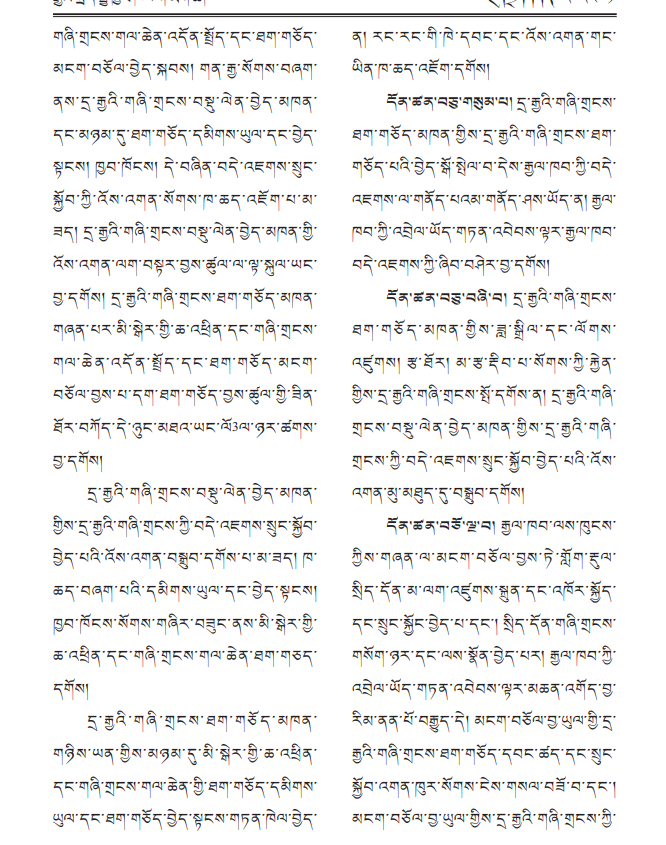 གཞི་གྲངས་གལ་ཆེན་འདོན་སྤྲོད་དང་ཐག་གཅོད་
མངག་བཅོལ་བྱེད་སྐབས། གན་རྒྱ་སོགས་བཞག་
ནས་དྲ་རྒྱའི་གཞི་གྲངས་བསྡུ་ལེན་བྱེད་མཁན་
དང་མཉམ་དུ་ཐག་གཅོད་དམིགས་ཡུལ་དང་བྱེད་
སྟངས། ཁྱབ་ཁོངས། དེ་བཞིན་བདེ་འཇགས་སྲུང་
སྐྱོབ་ཀྱི་འོས་འགན་སོགས་ཁ་ཆད་འཇོག་པ་མ་
ཟད། དྲ་རྒྱའི་གཞི་གྲངས་བསྡུ་ལེན་བྱེད་མཁན་གྱི་
འོས་འགན་ལག་བསྟར་བྱས་ཚུལ་ལ་ལྟ་སྐུལ་ཡང་
བྱ་དགོས། དྲ་རྒྱའི་གཞི་གྲངས་ཐག་གཅོད་མཁན་
གཞན་པར་མི་སྒེར་གྱི་ཆ་འཕྲིན་དང་གཞི་གྲངས་
གལ་ཆེན་འདོན་སྤྲོད་དང་ཐག་གཅོད་མངག་
བཅོལ་བྱས་པ་དག་ཐག་གཅོད་བྱས་ཚུལ་གྱི་ཟིན་
ཐོར་བཀོད་དེ་ཉུང་མཐའ་ཡང་ལོ3ལ་ཉར་ཚགས་
བྱ་དགོས།
དྲ་རྒྱའི་གཞི་གྲངས་བསྡུ་ལེན་བྱེད་མཁན་
གྱིས་དྲ་རྒྱའི་གཞི་གྲངས་ཀྱི་བདེ་འཇགས་སྲུང་སྐྱོབ་
བྱེད་པའི་འོས་འགན་བསྒྲུབ་དགོས་པ་མ་ཟད། ཁ་
ཆད་བཞག་པའི་དམིགས་ཡུལ་དང་བྱེད་སྟངས།
ཁྱབ་ཁོངས་སོགས་གཞིར་བཟུང་ནས་མི་སྒེར་གྱི་
ཆ་འཕྲིན་དང་གཞི་གྲངས་གལ་ཆེན་ཐག་གཅད་
དགོས།
དྲ་རྒྱའི་གཞི་གྲངས་ཐག་གཅོད་མཁན་
གཉིས་ཡན་གྱིས་མཉམ་དུ་མི་སྒེར་གྱི་ཆ་འཕྲིན་
དང་གཞི་གྲངས་གལ་ཆེན་གྱི་ཐག་གཅོད་དམིགས་
ཡུལ་དང་ཐག་གཅོད་བྱེད་སྟངས་གཏན་ཁེལ་བྱེད་
ན། རང་རང་གི་ཁེ་དབང་དང་འོས་འགན་གང་
ཡིན་ཁ་ཆད་འཇོག་དགོས།
དོན་ཚན་བཅུ་གསུམ་པ། དྲ་རྒྱའི་གཞི་གྲངས་
ཐག་གཅོད་མཁན་གྱིས་དྲ་རྒྱའི་གཞི་གྲངས་ཐག་
གཅོད་པའི་བྱེད་སྒོ་སྤེལ་བ་དེས་རྒྱལ་ཁབ་ཀྱི་བདེ་
འཇགས་ལ་གནོད་པའམ་གནོད་ཤས་ཡོད་ན། རྒྱལ་
ཁབ་ཀྱི་འབྲེལ་ཡོད་གཏན་འབེབས་ལྟར་རྒྱལ་ཁབ་
བདེ་འཇགས་ཀྱི་ཞིབ་བཤེར་བྱ་དགོས།
དོན་ཚན་བཅུ་བཞི་བ། དྲ་རྒྱའི་གཞི་གྲངས་
ཐག་གཅོད་མཁན་གྱིས་ཟླ་སྒྲིལ་དང་ལོགས་
འཛུགས། རྩ་ཐོར། མ་རྩ་རྡིབ་པ་སོགས་ཀྱི་རྐྱེན་
གྱིས་དྲ་རྒྱའི་གཞི་གྲངས་སྤོ་དགོས་ན། དྲ་རྒྱའི་གཞི་
གྲངས་བསྡུ་ལེན་བྱེད་མཁན་གྱིས་དྲ་རྒྱའི་གཞི་
གྲངས་ཀྱི་བདེ་འཇགས་སྲུང་སྐྱོབ་བྱེད་པའི་འོས་
འགན་མུ་མཐུད་དུ་བསྒྲུབ་དགོས།
དོན་ཚན་བཅོ་ལྔ་བ། རྒྱལ་ཁབ་ལས་ཁུངས་
ཀྱིས་གཞན་ལ་མངག་བཅོལ་བྱས་ཏེ་གློག་རྡུལ་
སྲིད་དོན་མ་ལག་འཛུགས་སྐྲུན་དང་འཁོར་སྐྱོད་
དང་སྲུང་སྐྱོང་བྱེད་པ་དང༌། སྲིད་དོན་གཞི་གྲངས་
གསོག་ཉར་དང་ལས་སྣོན་བྱེད་པར། རྒྱལ་ཁབ་ཀྱི་
འབྲེལ་ཡོད་གཏན་འབེབས་ལྟར་མཆན་འགོད་བྱ་
རིམ་ནན་པོ་བརྒྱུད་དེ། མངག་བཅོལ་བྱ་ཡུལ་གྱི་དྲ་
རྒྱའི་གཞི་གྲངས་ཐག་གཅོད་དབང་ཚད་དང་སྲུང་
སྐྱོབ་འགན་ཁུར་སོགས་ངེས་གསལ་བཟོ་བ་དང༌།
མངག་བཅོལ་བྱ་ཡུལ་གྱིས་དྲ་རྒྱའི་གཞི་གྲངས་ཀྱི་